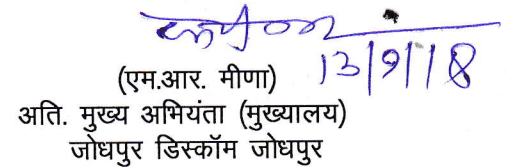 13/9/18
(एम.आर. मीणा)
अति. मुख्य अभियंता (मुख्यालय)
जोधपुर डिस्कॉम जोधपुर